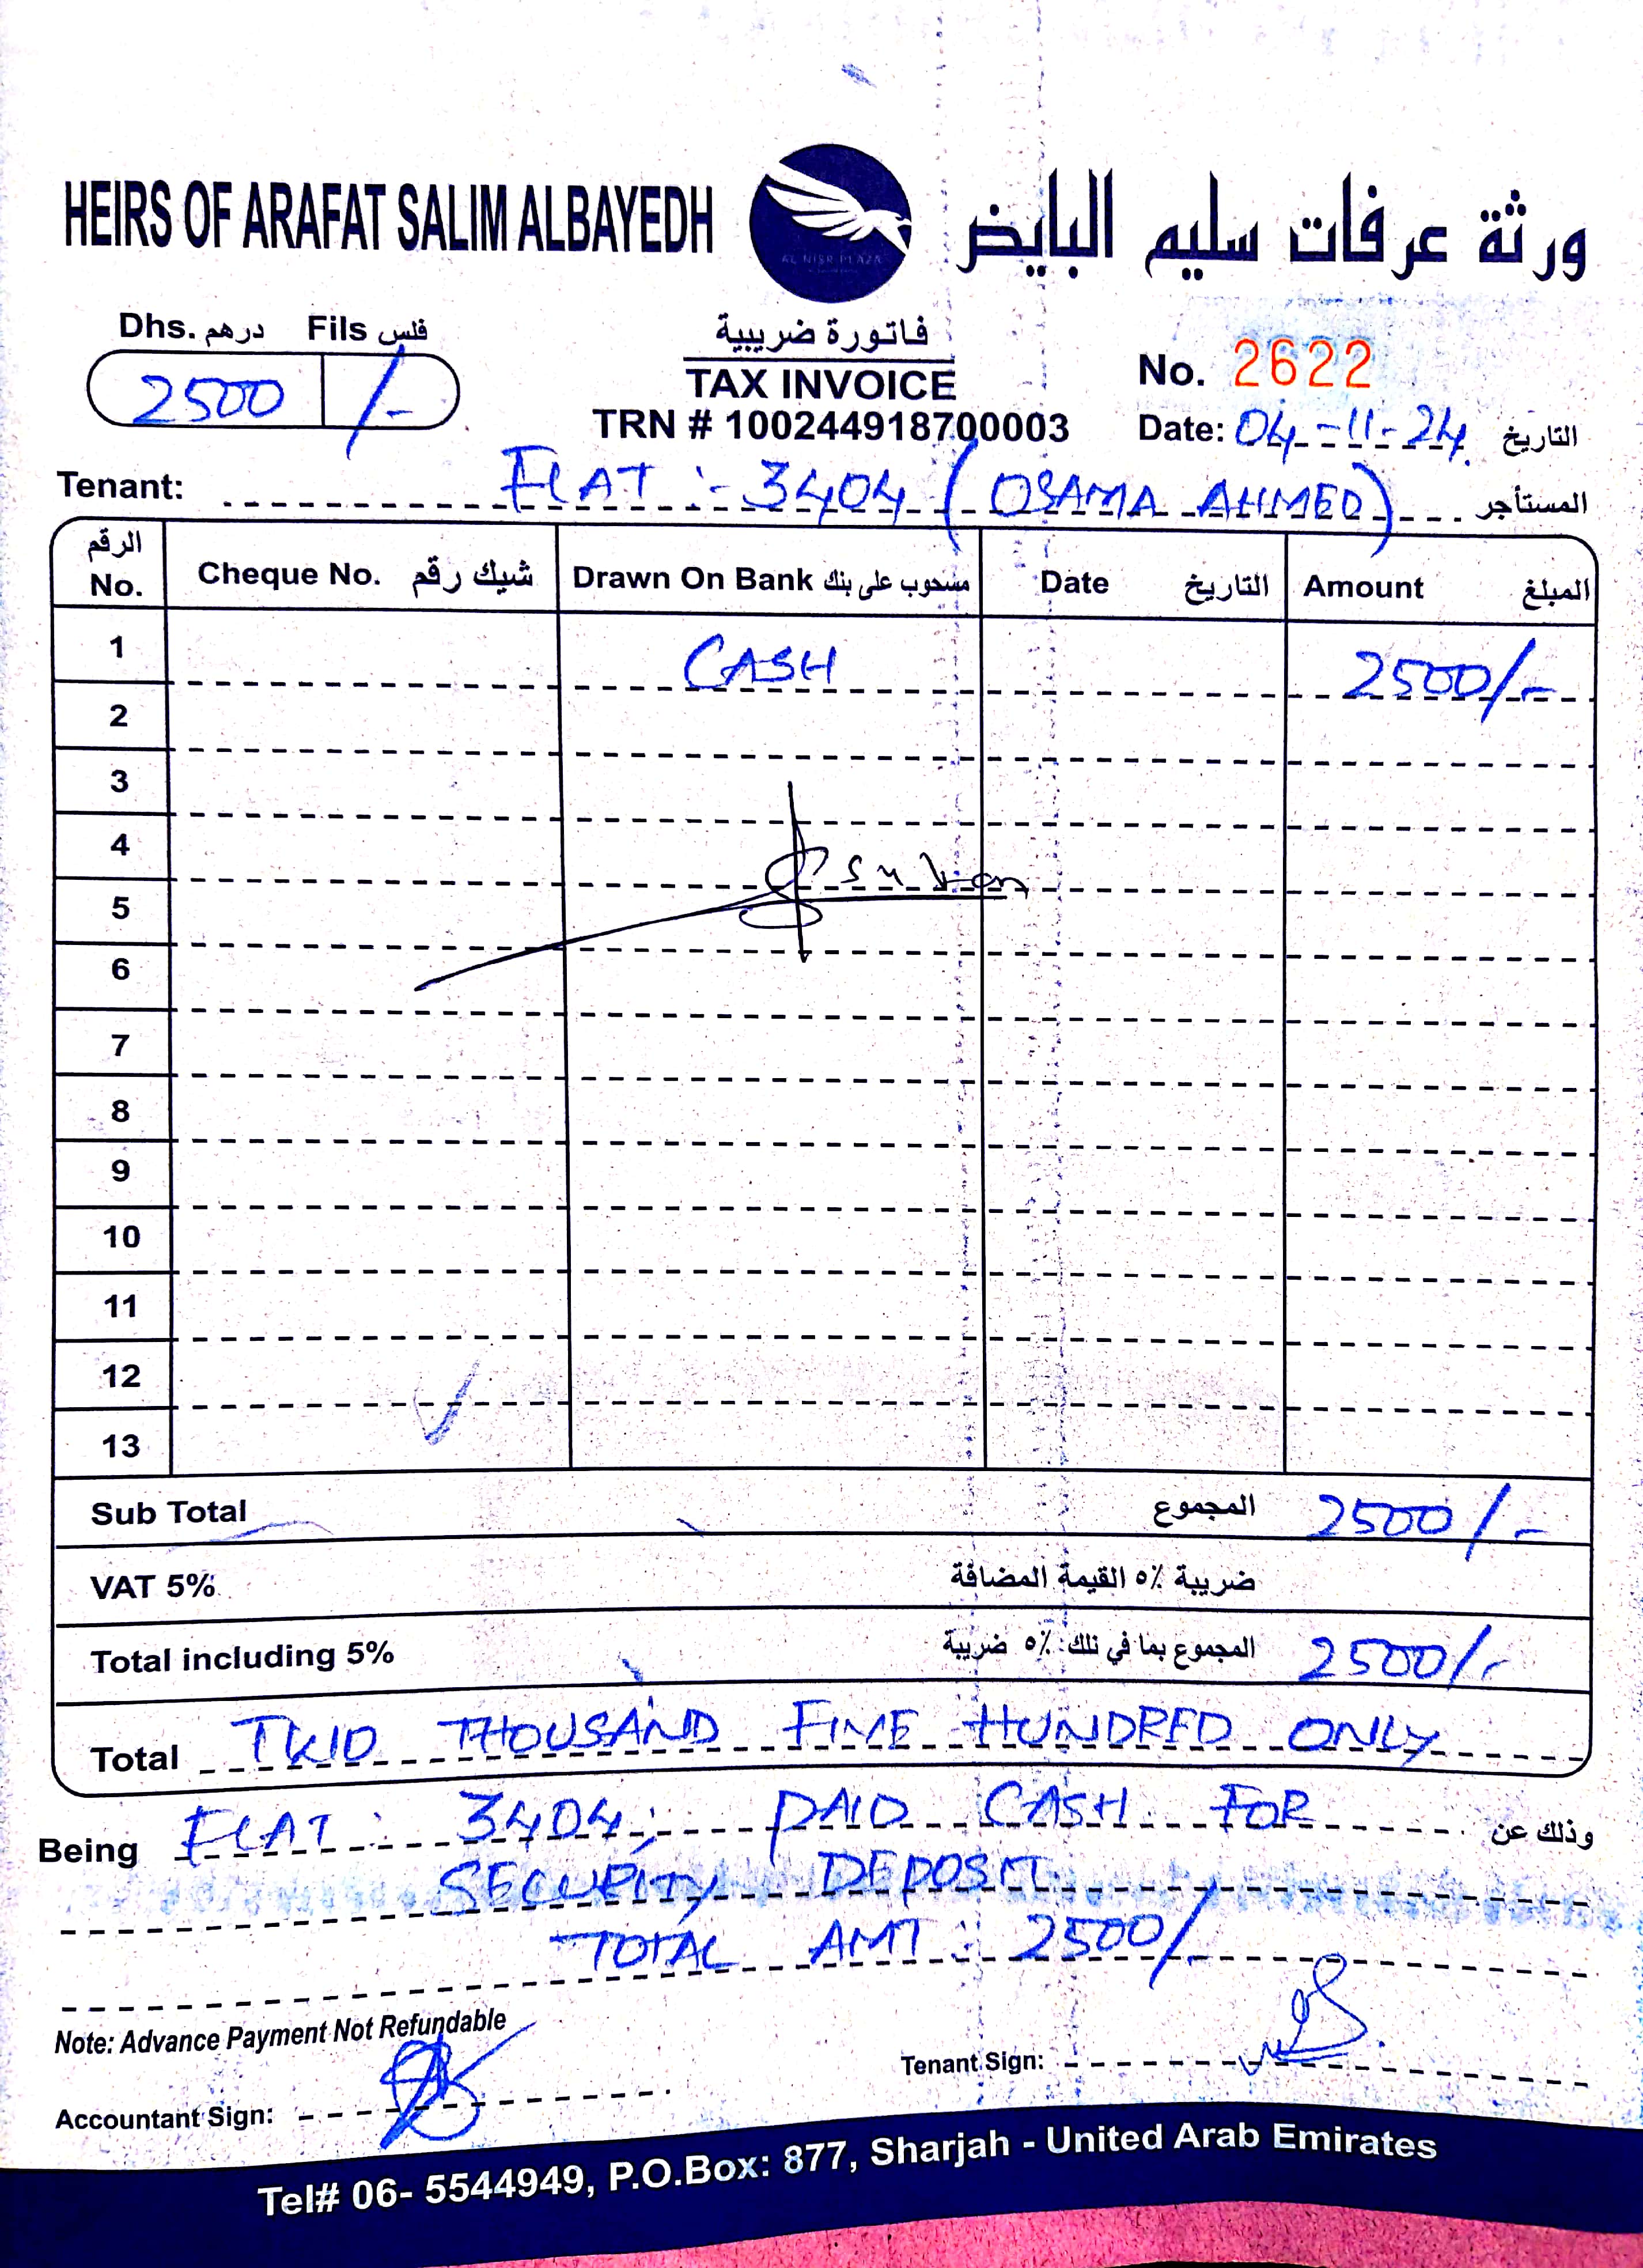 HEIRS OF ARAFAT SALIM ALBAYEDH
AL NISR PLAZA
ورثة عرفات سليم البايض
Dhs. درهم Fils فلس
2500 /-
فاتورة ضريبية
TAX INVOICE
TRN # 100244918700003
No. 2622
Date: 04-11-24 التاريخ
Tenant: FLAT :- 3404 (OSAMA AHMED) المستأجر
الرقم No. Cheque No. شيك رقم Drawn On Bank مسحوب على بنك Date التاريخ Amount المبلغ
1 CASH 2500/-
2
3
4
5
6
7
8
9
10
11
12
13
Sub Total المجموع 2500/-
VAT 5% ضريبة ٥٪ القيمة المضافة
Total including 5% المجموع بما في تلك ٥٪ ضريبة 2500/-
Total TWO THOUSAND FIVE HUNDRED ONLY
Being FLAT: 3404; PAID CASH FOR وذلك عن
SECURITY DEPOSIT
TOTAL AMT: 2500/-
Note: Advance Payment Not Refundable
Tenant Sign:
Accountant Sign:
Tel# 06- 5544949, P.O.Box: 877, Sharjah - United Arab Emirates